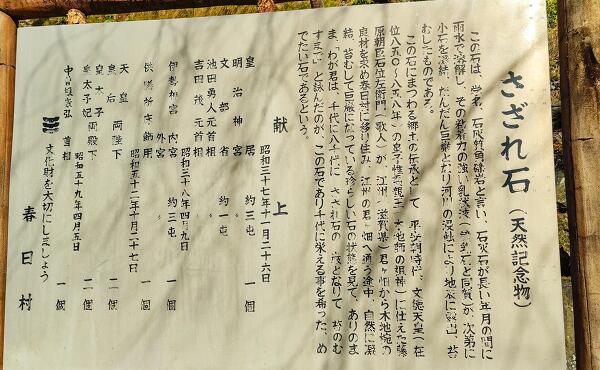 さざれ石(天然記念物)
この石は、学名、石灰質角礫岩と言い、石灰石が長い年月の間に
雨水で溶解し、その粘着力の強い乳状液(鍾乳石と同質)が、次第に
小石を凝結、だんだん巨巌となり河川の浸蝕により地表に露出、苔
むしたものである。
この石にまつわる郷土の伝承として、平安朝時代、文徳天皇(在
位八五〇~八五八年)の皇子惟喬親王(木地師の祖神)に仕えた藤
原朝臣石位左衛門(歌人)が、江州(滋賀県)君ヶ畑から木地椀の
良材を求め春日村に移り住み、江州の君ヶ畑へ通う途中、自然に凝
結、苔むして巨巌になっている珍らしい石の状態を見て、ありのま
ま「わが君は、千代に八千代に、さざれ石の巌となりて、苔のむ
すまで」と詠んだのが、この石であり千代に栄える事を祷った、め
でたい石であるという。
献上
昭和三十七年十一月二十六日
皇居 約三屯 一個
明治神宮 約三屯 〃
文部省 約一屯 〃
池田勇人元首相 〃
吉田茂元首相 〃
昭和三十八年四月九日
伊勢神宮 内宮 約三屯 一個
外宮 〃
昭和五十二年十月二十七日
一個
天皇 皇后 両陛下 二個
皇太子 皇太子妃 両殿下 二個
昭和五十九年四月五日
中曽根康弘 首相 一個
文化財を大切にしましょう
春日村